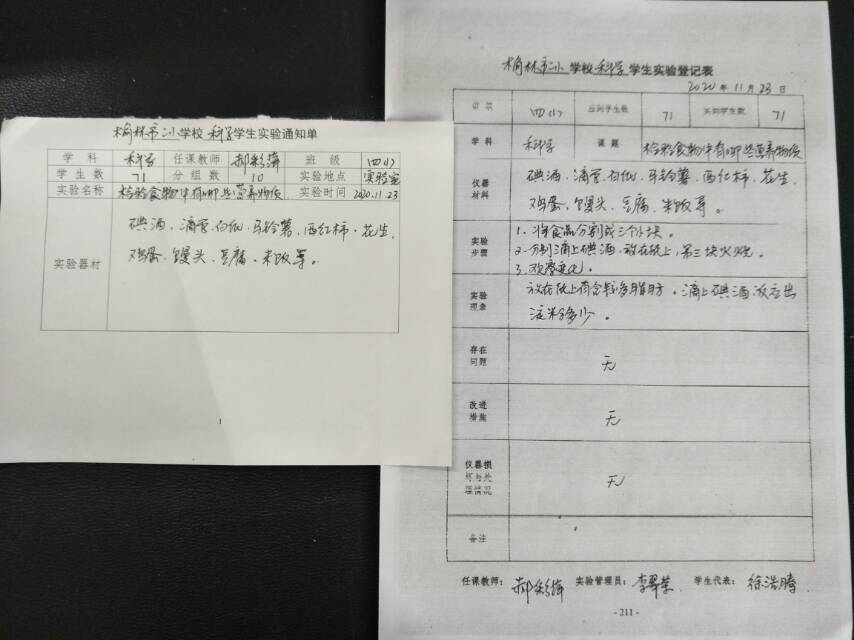 榆林市二小学校科学学生实验通知单
学科 科学 任课教师 郝彩梅 班级 四(1)
学生数 71 分组数 10 实验地点 实验室
实验名称 检验食物中有哪些营养物质 实验时间 2020.11.23
实验器材
碘酒,滴管.白纸.马铃薯,西红柿.花生.
鸡蛋.馒头.豆腐.米饭等。
1
榆林市二小学校科学学生实验登记表
2020年11月23日
四(1) 应到学生数 71 实到学生数 71
学科 科学 课题 检验食物中有哪些营养物质
仪器材料
碘酒.滴管.白纸.马铃薯.西红柿.花生.
鸡蛋.馒头.豆腐.米饭等.
实验步骤
1.将食品分割成三个小块.
2.分别滴上碘酒.放在纸上,第三块火烧.
3.观察变化.
实验现象
放在纸上符合较多脂肪.滴上碘酒.反应出
淀粉多少。
存在问题 无
改进措施 无
仪器损坏与处理情况 无
备注
任课教师: 郝彩梅 实验管理员: 李翠荣 学生代表: 徐浩腾
- 211 -